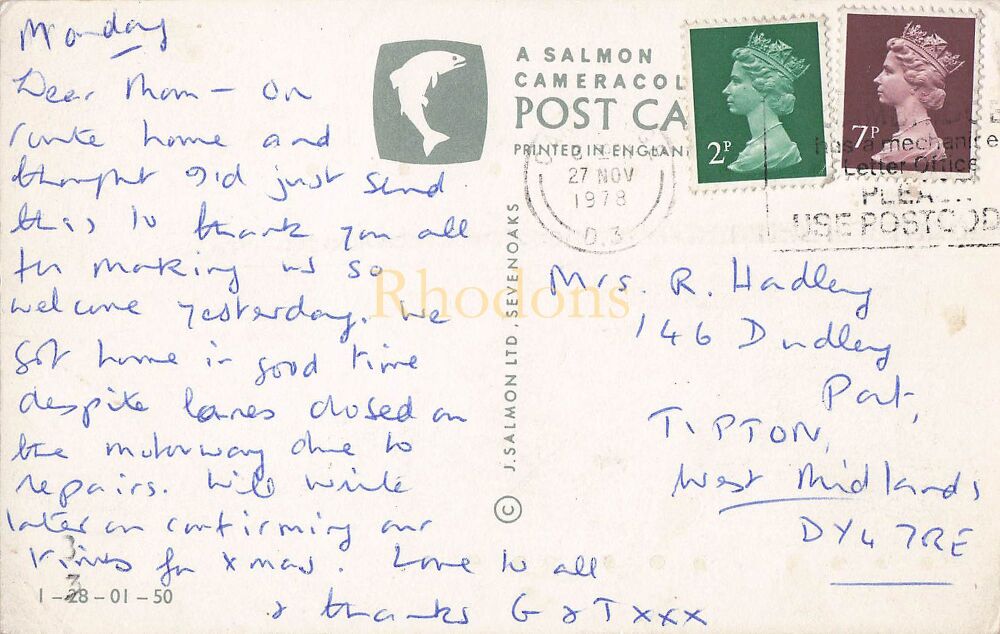 Monday
Dear Mom - on
route home and
thought I'd just send
this to thank you all
for making us so
welcome yesterday. We
got home in good time
despite lanes closed on
the motorway due to
repairs. Will write
later on confirming our
times for Xmas. Love to all
& thanks G & T xxx
1-28-01-50
3
3
A SALMON
CAMERACOL
POST CA
PRINTED IN ENGLAN
© J. SALMON LTD., SEVENOAKS
2P
7P
27 NOV
1978
D.3
has a mechanise
Letter Office
PLEA...
USE POSTCOD
Mrs. R. Hadley
146 Dudley
Port,
TIPTON,
West Midlands
DY4 7RE
Rhodons